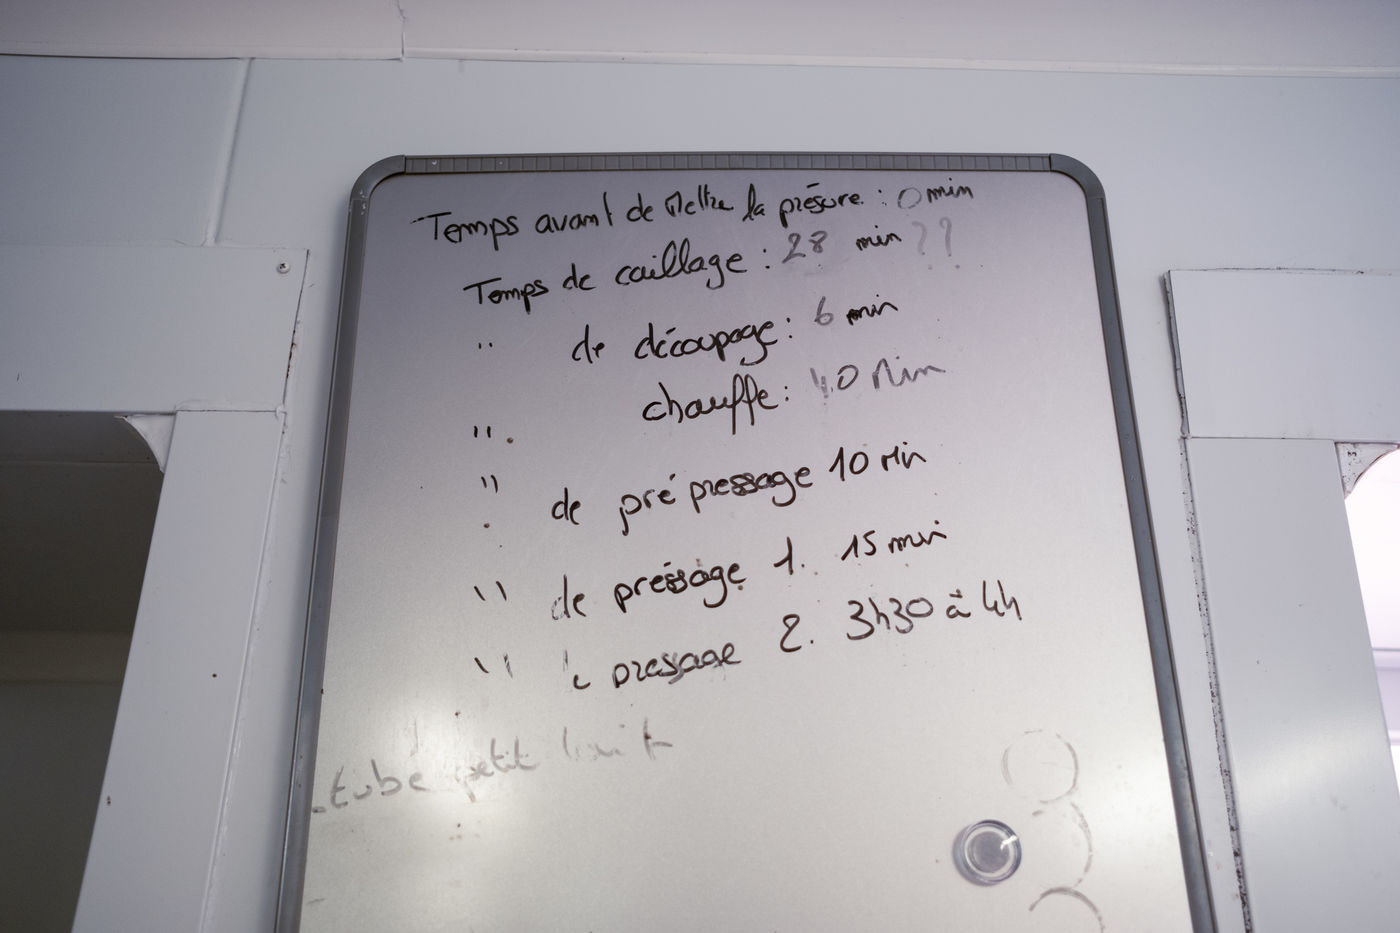 Temps avant de Mettre la présure : 0 min
Temps de caillage : 28 min ??
" de découpage : 6 min
" chauffe : 40 Min
" de pré pressage 10 Min
" de préssage 1. 15 min
" pressage 2. 3h30 à 4h
tube petit lait